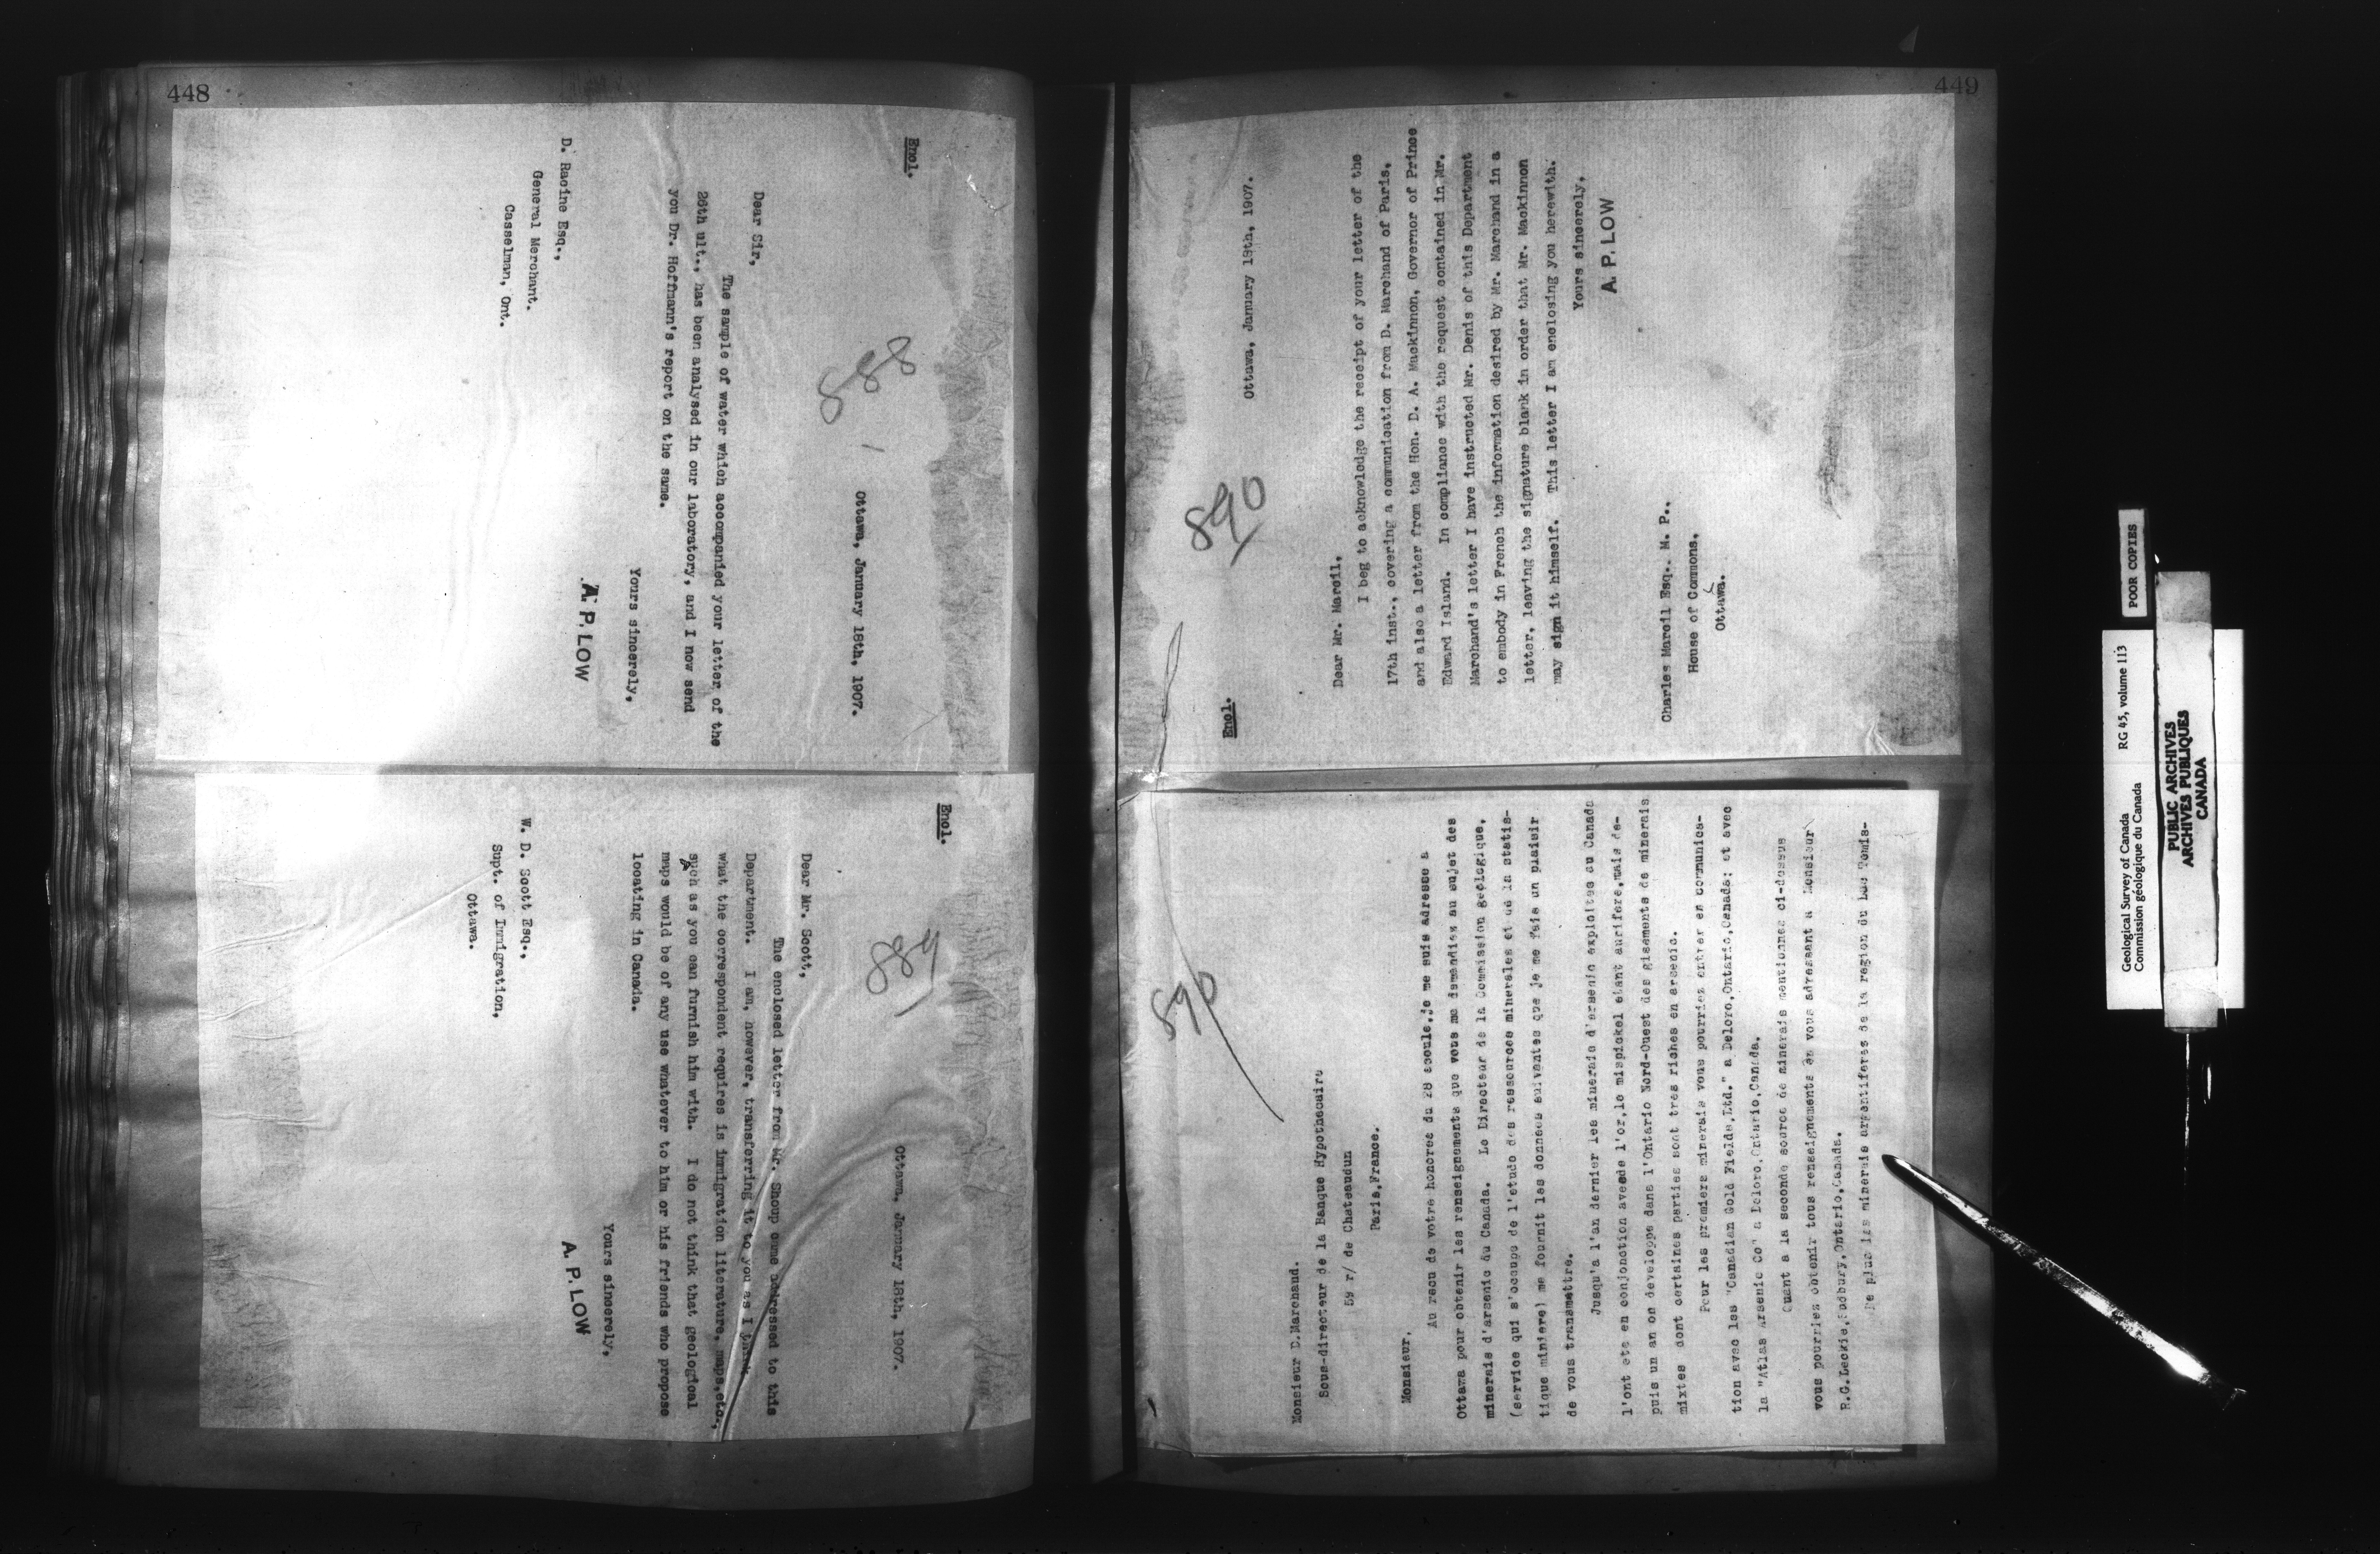 448
888
Encl.
Ottawa, January 18th, 1907.
Dear Sir,
The sample of water which accompanied your letter of the
26th ult., has been analysed in our laboratory, and I now send
you Dr. Hoffmann's report on the same.
Yours sincerely,
A. P. LOW
D. Racine Esq.,
General Merchant.
Casselman, Ont.
889
Encl.
Ottawa, January 18th, 1907.
Dear Mr. Scott,
The enclosed letter from Mr. Shoup came addressed to this
Department. I am, however, transferring it to you as I think
what the correspondent requires is immigration literature, maps,etc.,
such as you can furnish him with. I do not think that geological
maps would be of any use whatever to him or his friends who propose
locating in Canada.
Yours sincerely,
A. P. LOW
W. D. Scott Esq.,
Supt. of Immigration,
Ottawa.
449
890
Encl.
Ottawa, January 18th, 1907.
Dear Mr. Marcil,
I beg to acknowledge the receipt of your letter of the
17th inst., covering a communication from D. Marchand of Paris,
and also a letter from the Hon. D. A. Mackinnon, Governor of Prince
Edward Island. In compliance with the request contained in Mr.
Marchand's letter I have instructed Mr. Denis of this Department
to embody in French the information desired by Mr. Marchand in a
letter, leaving the signature blank in order that Mr. Mackinnon
may sign it himself. This letter I am enclosing you herewith.
Yours sincerely,
A. P. LOW
Charles Marcil Esq., M. P.,
House of Commons,
Ottawa.
890
Monsieur D.Marchand.
Sous-directeur de la Banque Hypothecaire
59 r/ de Chateaudun
Paris,France.
Monsieur,
Au recu de votre honoree du 28 ecoule,je me suis adresse a
Ottawa pour obtenir les renseignements que vous me demandiez au sujet des
minerais d'arsenic du Canada. Le Directeur de la Commission geologique,
(service qui s'occupe de l'etude des ressources minerales et de la statis-
tique miniere) me fournit les donnees suivantes que je me fais un plaisir
de vous transmettre.
Jusqu'a l'an dernier les minerais d'arsenic exploites au Canada
l'ont ete en conjonction avecde l'or,le mispickel etant aurifere,mais de-
puis un an on developpe dans l'Ontario Nord-Ouest des gisements de minerais
mixtes dont certaines parties sont tres riches en arsenic.
Pour les premiers minerais vous pourriez entrer en communica-
tion avec les "Canadian Gold Fields,Ltd." a Deloro,Ontario,Canada; et avec
la "Atlas Arsenic Co" a Deloro,Ontario,Canada.
Quant a la seconde source de minerais mentionnes ci-dessus
vous pourriez obtenir tous renseignements en vous adressant a Monsieur
R.G.Leckie,Sudbury,Ontario,Canada.
De plus les minerais argentiferes de la region du Lac Temis-
POOR COPIES
Geological Survey of Canada RG 45, volume 113
Commission géologique du Canada
PUBLIC ARCHIVES
ARCHIVES PUBLIQUES
CANADA